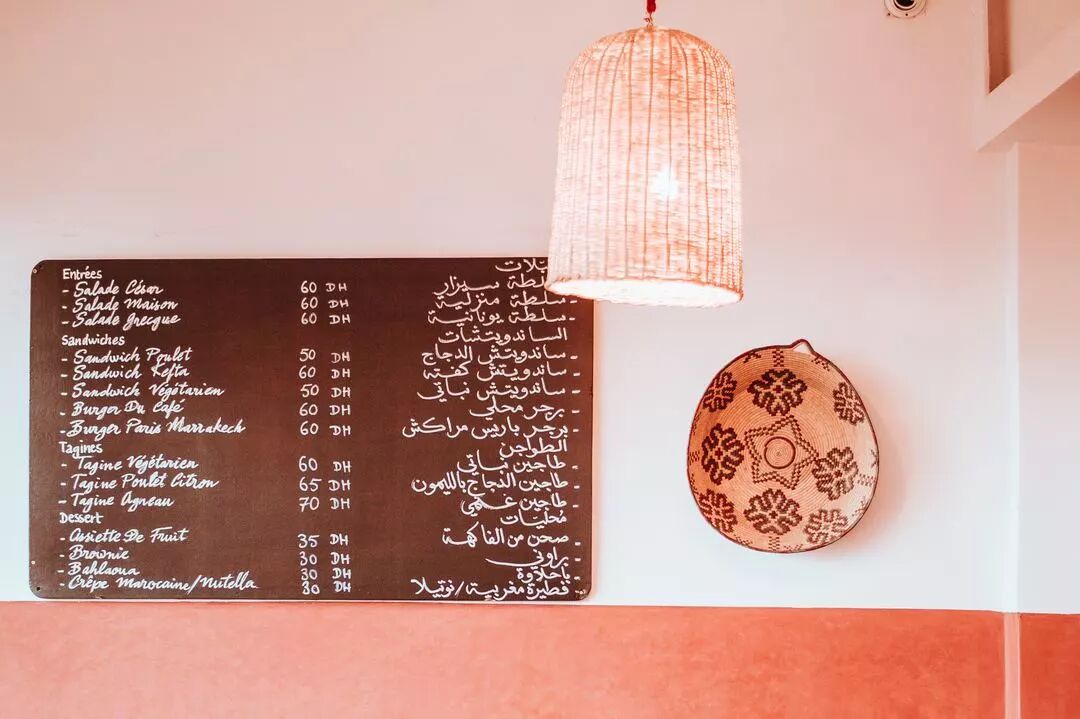 Entrées
- Salade César 60 DH سلطة سيزار
- Salade Maison 60 DH سلطة منزلية
- Salade Grecque 60 DH - سلطة يونانية
Sandwiches الساندويتشات
- Sandwich Poulet 50 DH - ساندويتش الدجاج
- Sandwich Kefta 60 DH - ساندويتش كفته
- Sandwich Végétarien 50 DH - ساندويتش نباتي
- Burger Du Café 60 DH - برجر محلي
- Burger Paris Marrakech 60 DH - برجر باريس مراكش
Tagines الطواجن
- Tagine Végétarien 60 DH - طاجين نباتي
- Tagine Poulet Citron 65 DH - طاجين الدجاج بالليمون
- Tagine Agneau 70 DH - طاجين غنمي
Dessert محليات
- Assiette De Fruit 35 DH - صحن من الفاكهة
- Brownie 30 DH - براوني
- Bahlaoua 30 DH - باحلاوة
- Crêpe Marocaine/Nutella 30 DH - فطيرة مغربية/نوتيلا